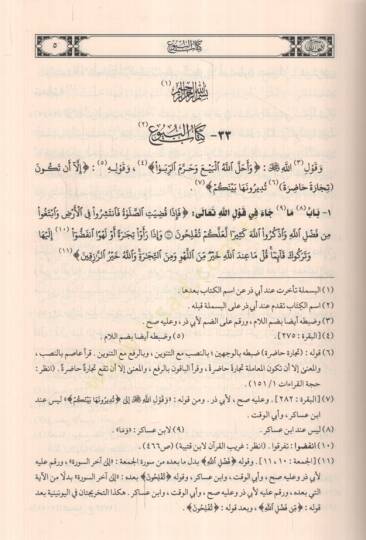 ٥
كتاب البيوع
بسم الله الرحمن الرحيم (١)
٣٣- كتاب البيوع (٢)
وَقَوْلِ (٣) اللهِ ﷺ: ﴿وَأَحَلَّ اللَّهُ الْبَيْعَ وَحَرَّمَ الرِّبَوٰا۟﴾ (٤)، وَقَوْلِهِ (٥): ﴿إِلَّآ أَن تَكُونَ
تِجَٰرَةً حَاضِرَةً (٦) تُدِيرُونَهَا بَيْنَكُمْ﴾ (٧).
١- بَابُ (٨) مَا (٩) جَاءَ فِي قَوْلِ اللهِ تَعَالَى: ﴿فَإِذَا قُضِيَتِ الصَّلَوٰةُ فَانتَشِرُوا۟ فِي الْأَرْضِ وَابْتَغُوا۟
مِن فَضْلِ اللَّهِ وَاذْكُرُوا۟ اللَّهَ كَثِيرًا لَّعَلَّكُمْ تُفْلِحُونَ ۝ وَإِذَا رَأَوْا۟ تِجَٰرَةً أَوْ لَهْوًا انفَضُّوٓا۟ (١٠) إِلَيْهَا
وَتَرَكُوكَ قَآئِمًا قُلْ مَا عِندَ اللَّهِ خَيْرٌ مِّنَ اللَّهْوِ وَمِنَ التِّجَٰرَةِ وَاللَّهُ خَيْرُ الرَّٰزِقِينَ﴾ (١١)
(١) البسملة تأخرت عند أبي ذر عن اسم الكتاب بعدها.
(٢) اسم الكتاب تقدم عند أبي ذر على البسملة قبله.
(٣) وضبطه أيضا بضم اللام، ورقم على الضم لأبي ذر، وعليه صح.
(٤) [البقرة: ٢٧٥]. (٥) وضبطه أيضا بضم اللام.
(٦) قوله: (تجارة حاضرة) ضبطه بالوجهين؛ بالنصب مع التنوين، وبالرفع مع التنوين. قرأ عاصم بالنصب،
والمعنى إلا أن تكون المعاملة تجارة حاضرة، وقرأ الباقون بالرفع، والمعنى إلا أن تقع تجارةٌ حاضرةٌ. (انظر:
حجة القراءات ١/ ١٥١).
(٧) [البقرة: ٢٨٢]. وعليه صح، لأبي ذر. ومن قوله: «وَقَوْلِ اللَّهِ إلى ﴿تُدِيرُونَهَا بَيْنَكُمْ﴾» ليس عند
ابن عساكر، وأبي الوقت.
(٨) ليس عند ابن عساكر. (٩) لابن عساكر: «وَمَا».
(١٠) انفضوا: تفرقوا. (انظر: غريب القرآن لابن قتيبة) (ص٤٦٦).
(١١) [الجمعة: ١٠، ١١]. وقوله: ﴿فَضْلِ اللَّهِ﴾ بدل ما بعده من سورة الجمعة: «إلى آخر السورة»، ورقم عليه
لأبي ذر وعليه صح، وأبي الوقت، ابن عساكر، وقوله ﴿تُفْلِحُونَ﴾ بعده: «إلى آخر السورة» بدلًا من الآية
التي بعده، ورقم عليه لأبي ذر وعليه صح، وأبي الوقت، وابن عساكر. هكذا التخريجتان في اليونينية بعد
قوله: ﴿مِن فَضْلِ اللَّهِ﴾، وبعد قوله: ﴿تُفْلِحُونَ﴾.